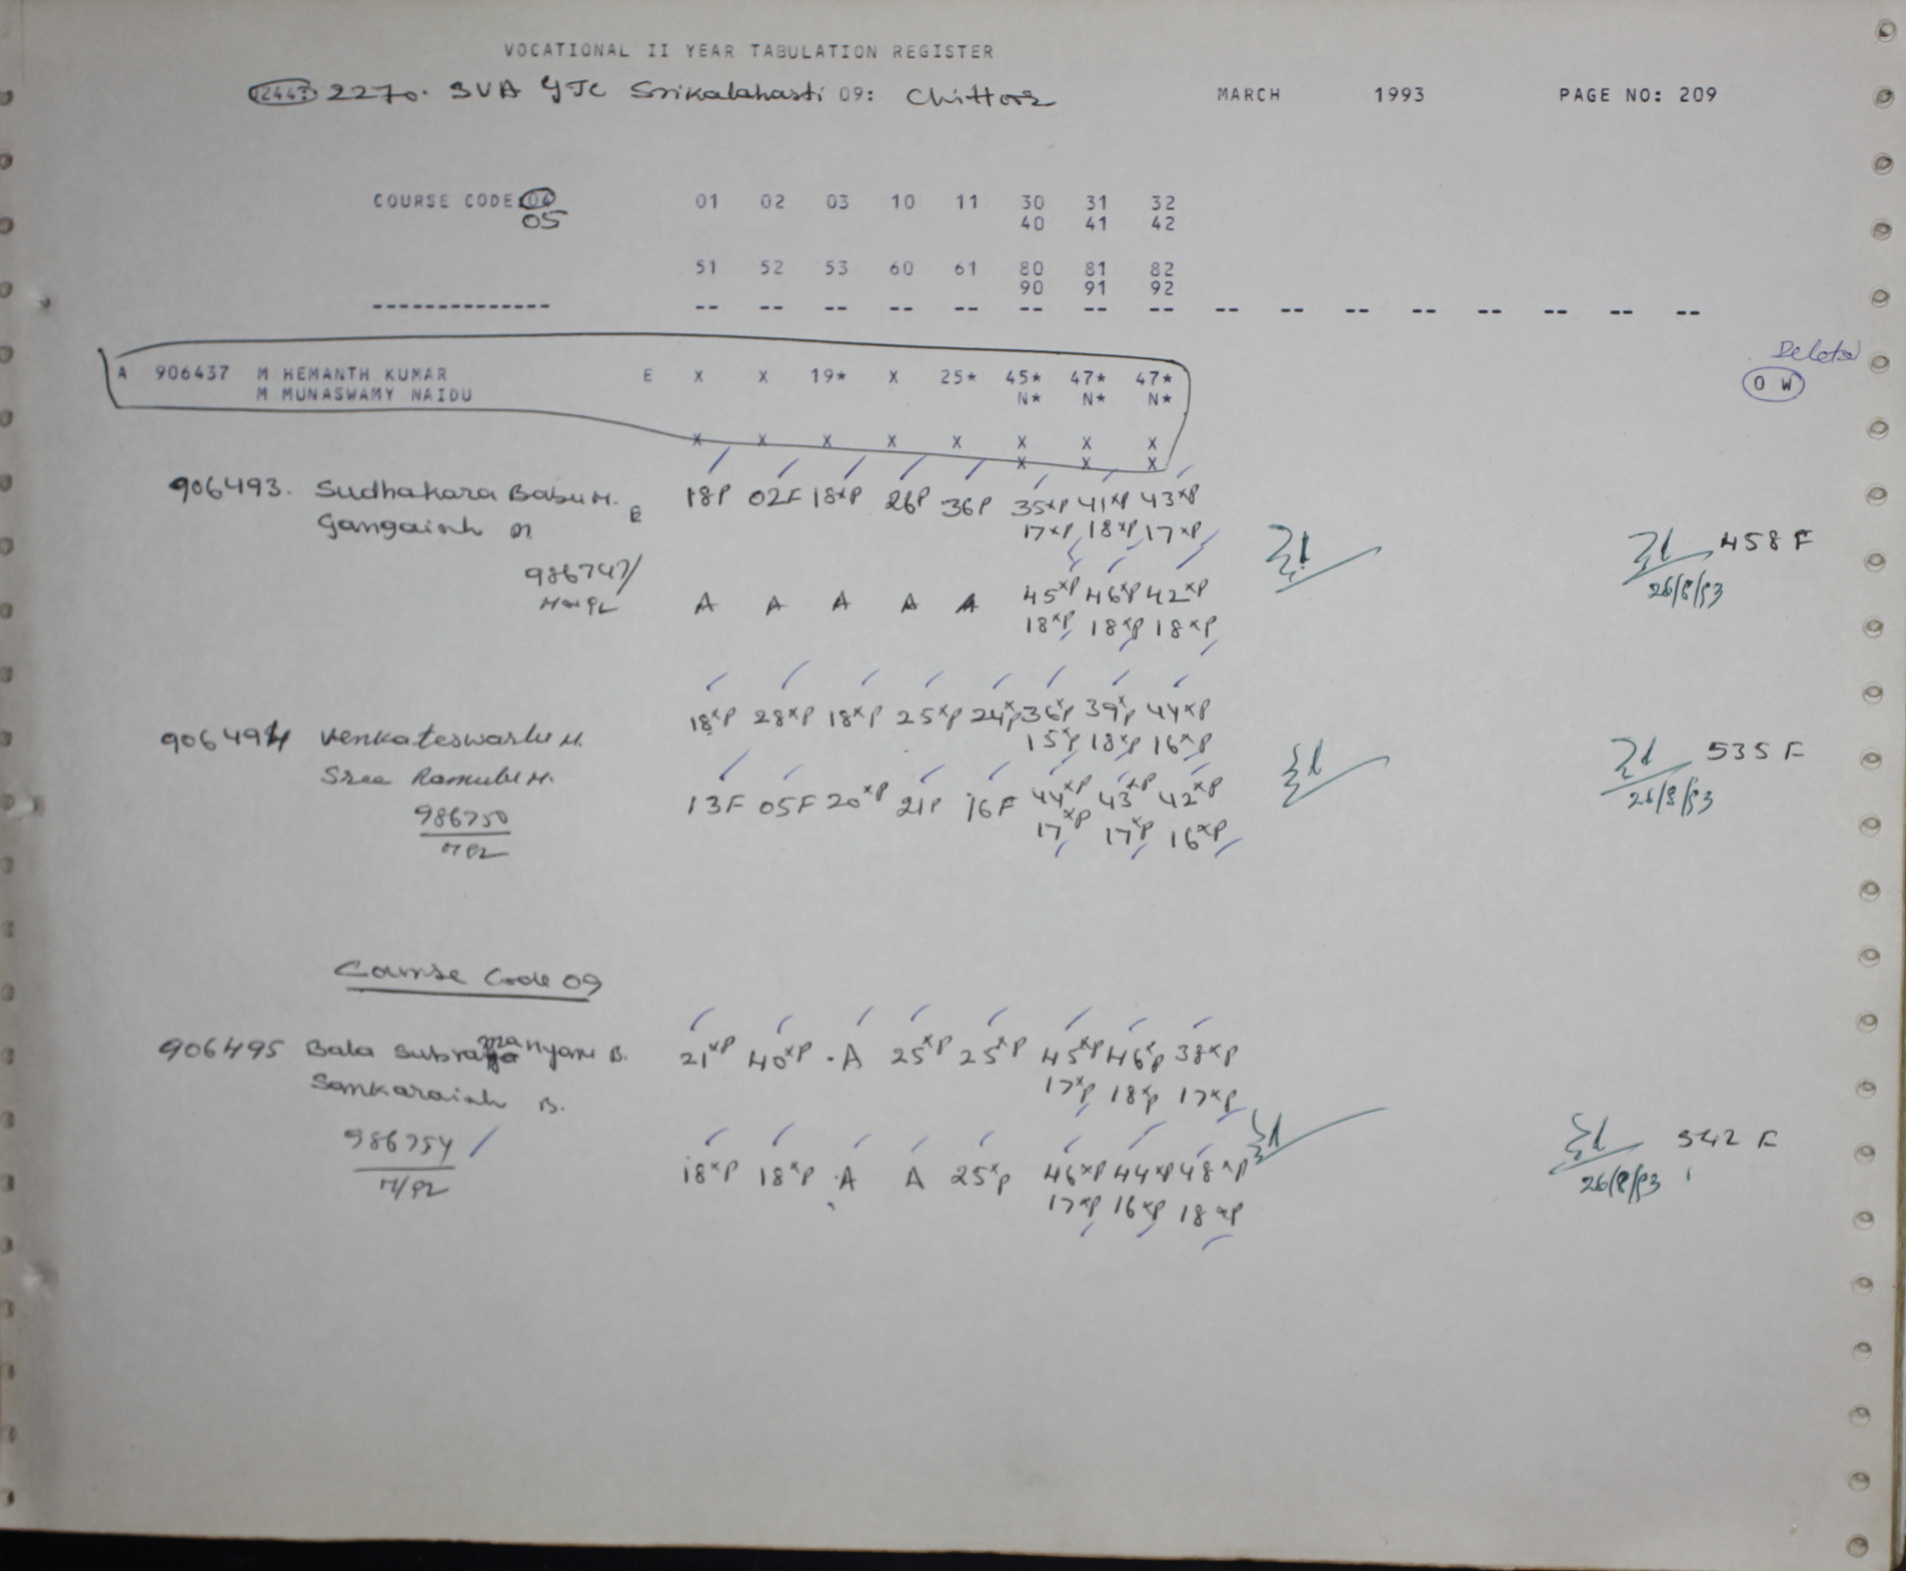 VOCATIONAL II YEAR TABULATION REGISTER
2270. SVA GJC Srikalahasti 09: Chittoor MARCH 1993 PAGE NO: 209
COURSE CODE 01 02 03 10 11 30 31 32
05 40 41 42
51 52 53 60 61 80 81 82
90 91 92
-------------- -- -- -- -- -- -- -- -- -- -- -- -- -- -- -- --
Deleted
A 906437 M HEMANTH KUMAR E X X 19* X 25* 45* 47* 47* O W
M MUNASWAMY NAIDU N* N* N*
X X X X X X X X
X X X
906493. Sudhakara Babu M. E 18P 02F 18xP 26P 36P 35xP 41xP 43xP
Gangaiah M 17xP 18xP 17xP 458 F
986747/ 45xP 46xP 42xP 26/8/93
A A A A A 18xP 18xP 18xP
18xP 28xP 18xP 25xP 24xP 36xP 39xP 44xP
906494 Venkateswarlu M. 15xP 18xP 16xP 535 F
Sree Ramulu M. 13F 05F 20xP 21P 16F 44xP 43xP 42xP 26/8/93
986750 17xP 17xP 16xP
Course Code 09
906495 Bala Subramanyam B. 21xP 40xP A 25xP 25xP 45xP 46xP 38xP
Sankaraiah B. 17xP 18xP 17xP
986754 / 18xP 18xP A A 25xP 46xP 44xP 48xP 542 F
17xP 16xP 18xP 26/8/93